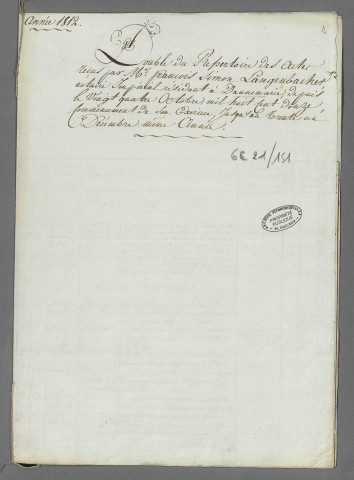 Année 1812.
1
Double du Répertoire des actes
reçus par Me. françois Simon Langenbacher
notaire Impérial résidant à Dannemarie depuis
le Vingt quatre Octobre mil huit cent douze,
commencement de son Exercice jusqu'au trente un
Décembre même Année.
6E 21/151
PROPRIÉTÉ
PUBLIQUE